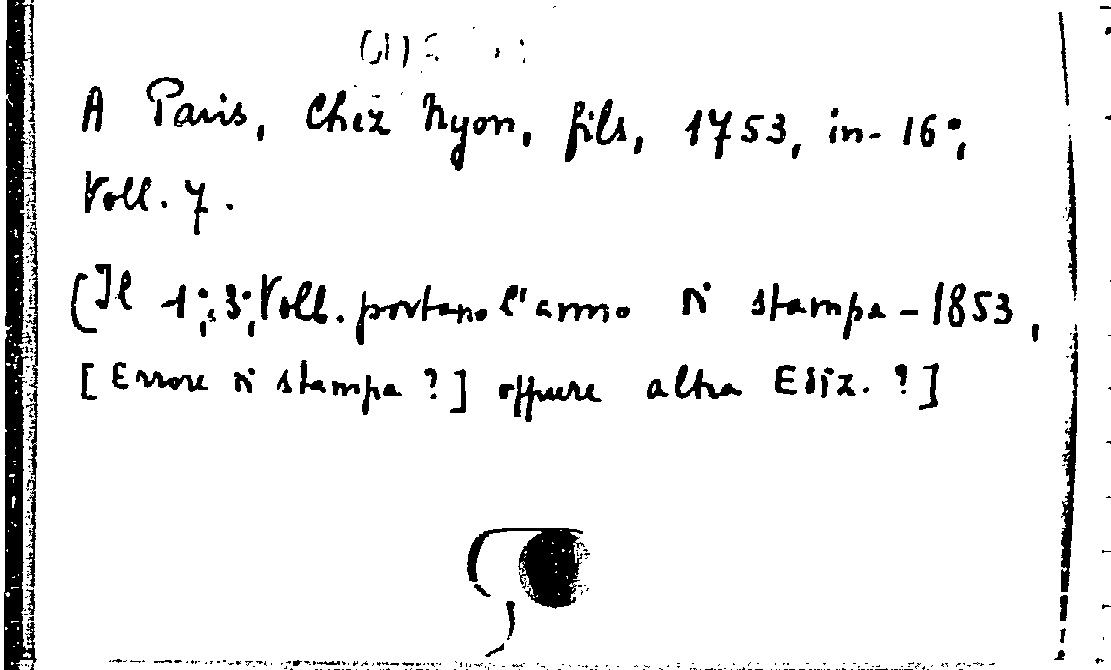 A Paris, Chez Nyon, fils, 1753, in-16°,
Voll. 7.
(Il 1°, 3°, Voll. portano l'anno di stampa - 1853,
[Errore di stampa ?] oppure altra Ediz. ?]